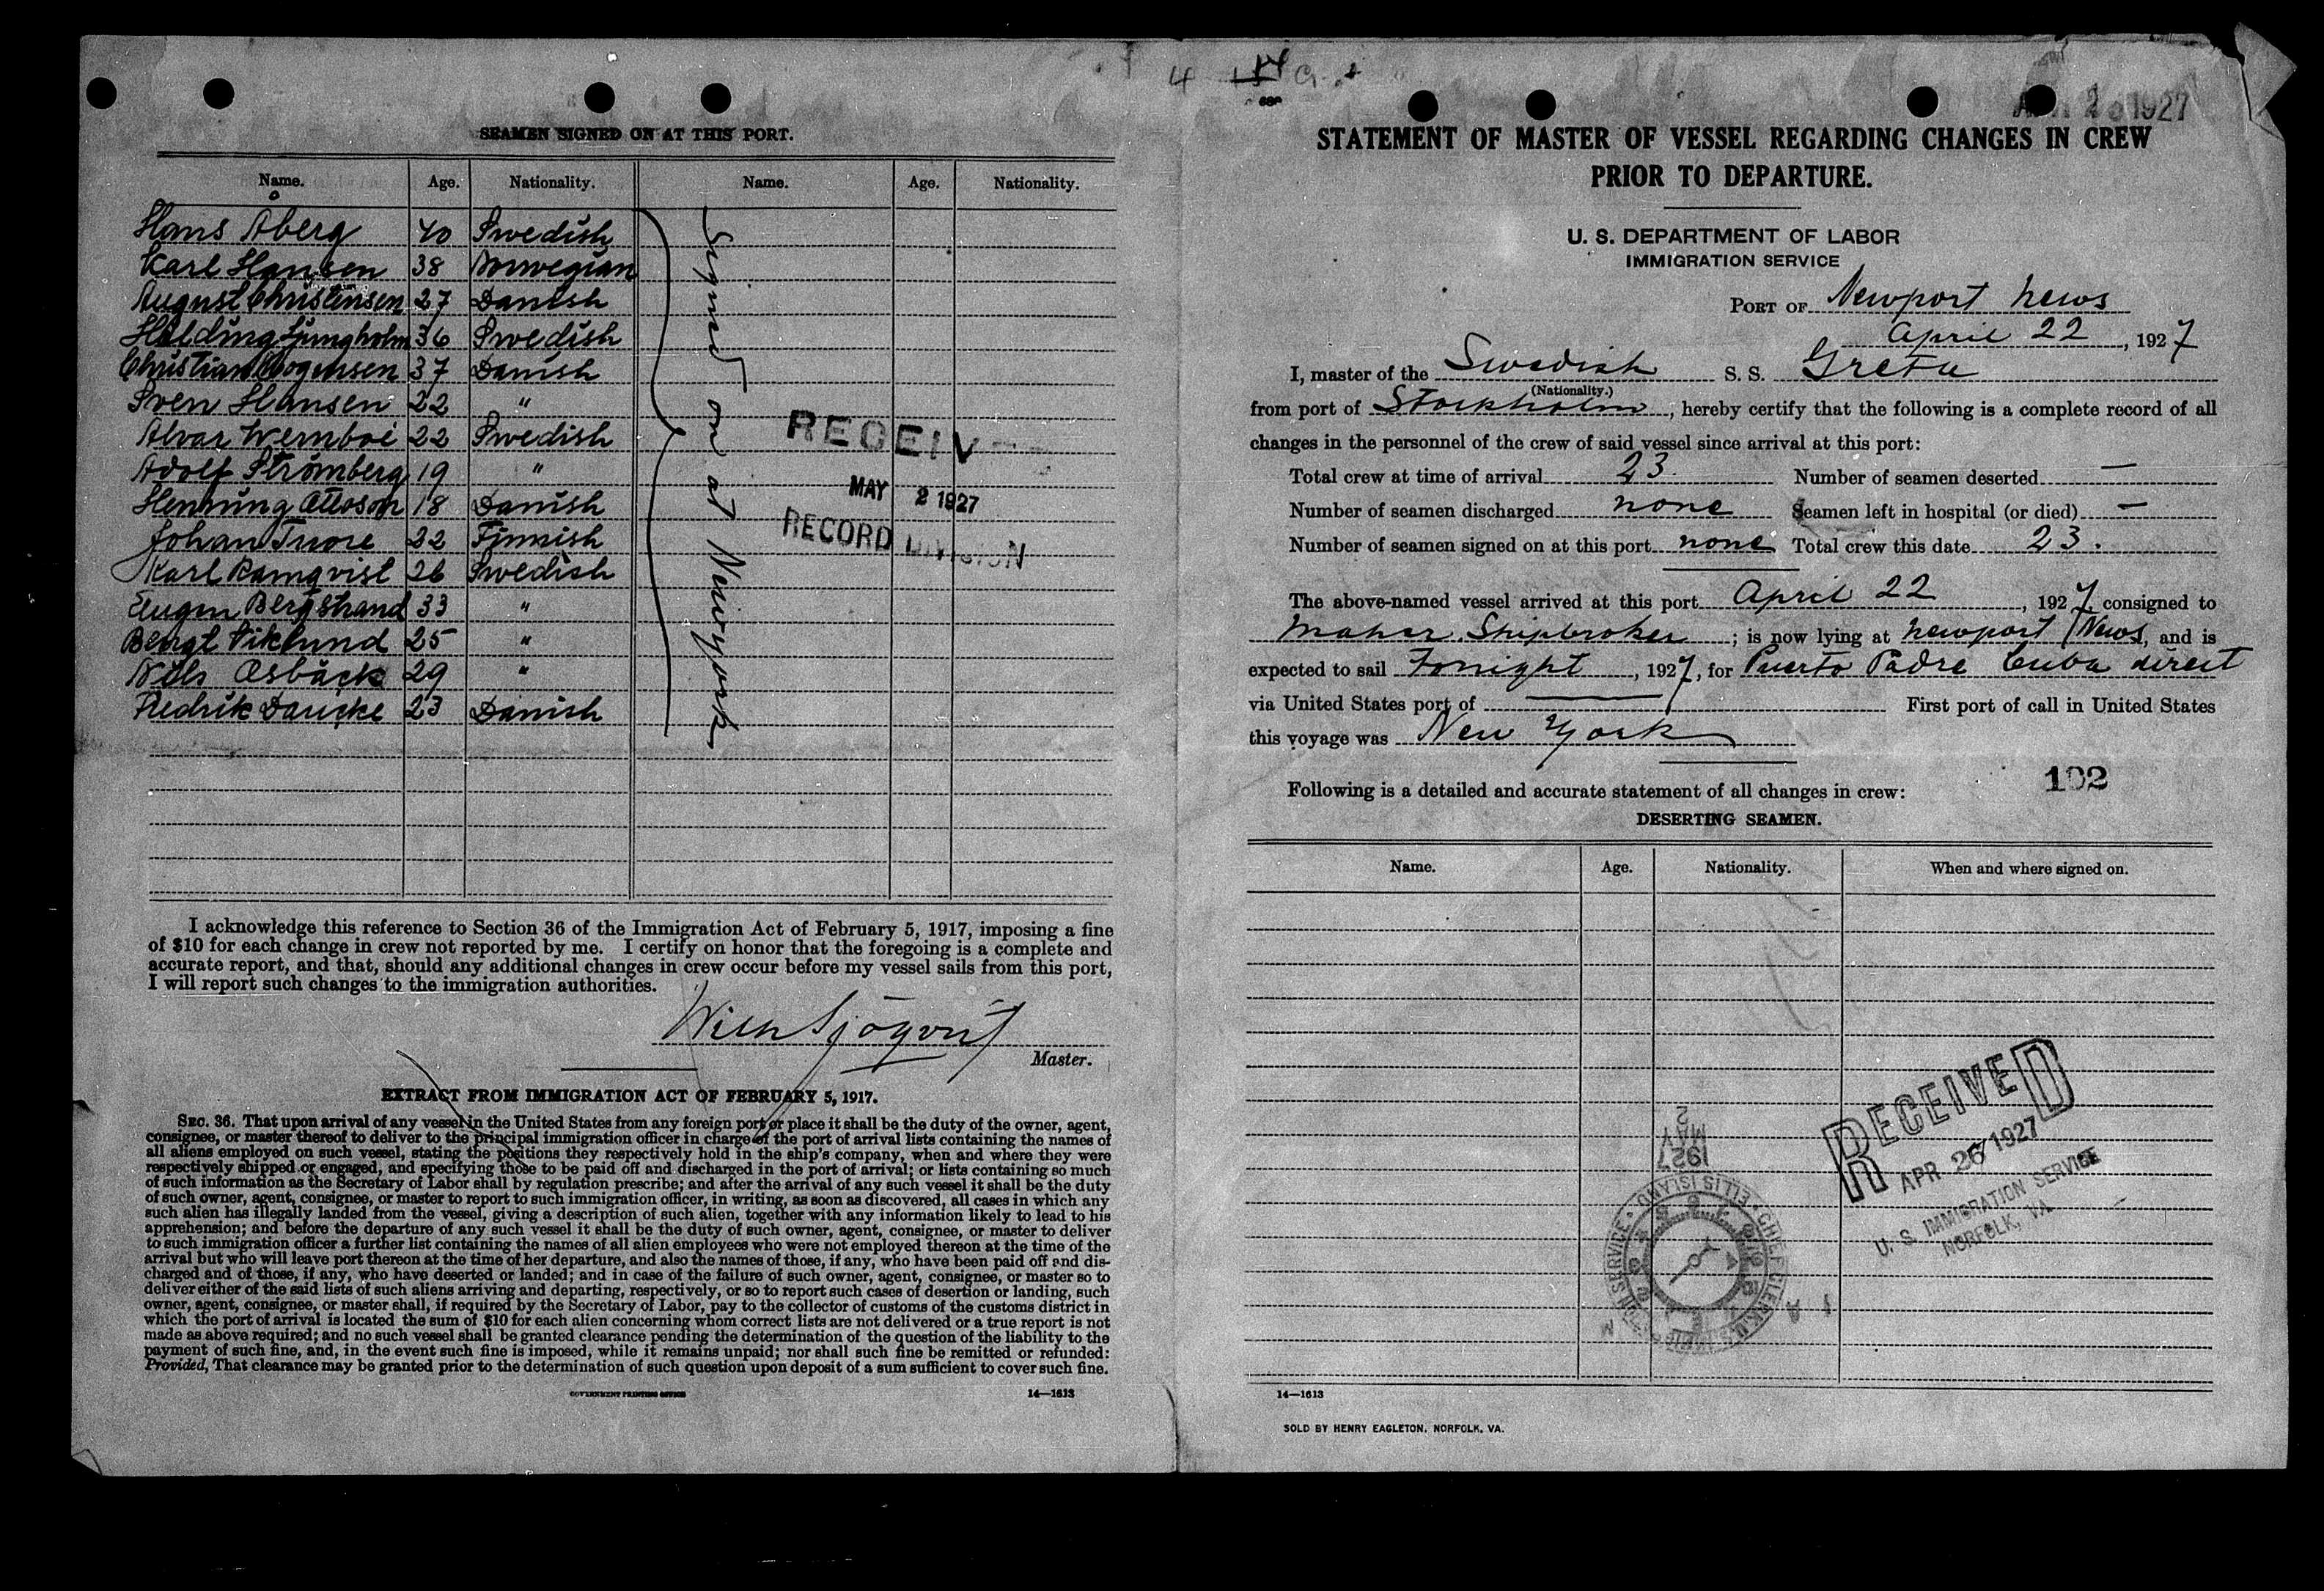 SEAMEN SIGNED ON AT THIS PORT.
Name. Age. Nationality. Name. Age. Nationality.
Hans Åberg 40 Swedish
Karl Hansen 38 Norwegian
August Christensen 27 Danish
Hilding Ljungholm 36 Swedish
Christian Mogensen 37 Danish
Sven Hansen 22 "
Alvar Wernboe 22 Swedish
Adolf Strömberg 19 "
Henning Ottoson 18 Danish
Johan Tuore 22 Finnish
Karl Ramqvist 26 Swedish
Eugen Bergstrand 33 "
Bengt Viklund 25 "
Nils Osbäck 29 "
Fredrik Dancke 23 Danish
Signed on at Newyork
RECEIV
MAY 2 1927
RECORD DIVISION
I acknowledge this reference to Section 36 of the Immigration Act of February 5, 1917, imposing a fine
of $10 for each change in crew not reported by me. I certify on honor that the foregoing is a complete and
accurate report, and that, should any additional changes in crew occur before my vessel sails from this port,
I will report such changes to the immigration authorities.
Wilh Sjöqvist
Master.
EXTRACT FROM IMMIGRATION ACT OF FEBRUARY 5, 1917.
SEC. 36. That upon arrival of any vessel in the United States from any foreign port or place it shall be the duty of the owner, agent,
consignee, or master thereof to deliver to the principal immigration officer in charge of the port of arrival lists containing the names of
all aliens employed on such vessel, stating the positions they respectively hold in the ship's company, when and where they were
respectively shipped or engaged, and specifying those to be paid off and discharged in the port of arrival; or lists containing so much
of such information as the Secretary of Labor shall by regulation prescribe; and after the arrival of any such vessel it shall be the duty
of such owner, agent, consignee, or master to report to such immigration officer, in writing, as soon as discovered, all cases in which any
such alien has illegally landed from the vessel, giving a description of such alien, together with any information likely to lead to his
apprehension; and before the departure of any such vessel it shall be the duty of such owner, agent, consignee, or master to deliver
to such immigration officer a further list containing the names of all alien employees who were not employed thereon at the time of the
arrival but who will leave port thereon at the time of her departure, and also the names of those, if any, who have been paid off and dis-
charged and of those, if any, who have deserted or landed; and in case of the failure of such owner, agent, consignee, or master so to
deliver either of the said lists of such aliens arriving and departing, respectively, or so to report such cases of desertion or landing, such
owner, agent, consignee, or master shall, if required by the Secretary of Labor, pay to the collector of customs of the customs district in
which the port of arrival is located the sum of $10 for each alien concerning whom correct lists are not delivered or a true report is not
made as above required; and no such vessel shall be granted clearance pending the determination of the question of the liability to the
payment of such fine, and, in the event such fine is imposed, while it remains unpaid; nor shall such fine be remitted or refunded:
Provided, That clearance may be granted prior to the determination of such question upon deposit of a sum sufficient to cover such fine.
GOVERNMENT PRINTING OFFICE 14—1613
STATEMENT OF MASTER OF VESSEL REGARDING CHANGES IN CREW
PRIOR TO DEPARTURE.
U. S. DEPARTMENT OF LABOR
IMMIGRATION SERVICE
PORT OF Newport News
April 22, 1927
I, master of the Swedish S. S. Greta
(Nationality.)
from port of Stockholm, hereby certify that the following is a complete record of all
changes in the personnel of the crew of said vessel since arrival at this port:
Total crew at time of arrival 23. Number of seamen deserted —
Number of seamen discharged none Seamen left in hospital (or died) —
Number of seamen signed on at this port none Total crew this date 23.
The above-named vessel arrived at this port April 22, 1927, consigned to
Maher Shipbroker; is now lying at Newport News, and is
expected to sail Tonight, 1927, for Puerto Padre Cuba direct
via United States port of — First port of call in United States
this voyage was New York
192
Following is a detailed and accurate statement of all changes in crew:
DESERTING SEAMEN.
Name. Age. Nationality. When and where signed on.
RECEIVED
APR 26 1927
U. S. IMMIGRATION SERVICE
NORFOLK, VA.
MAY 2
1927
14—1613
SOLD BY HENRY EAGLETON, NORFOLK, VA.